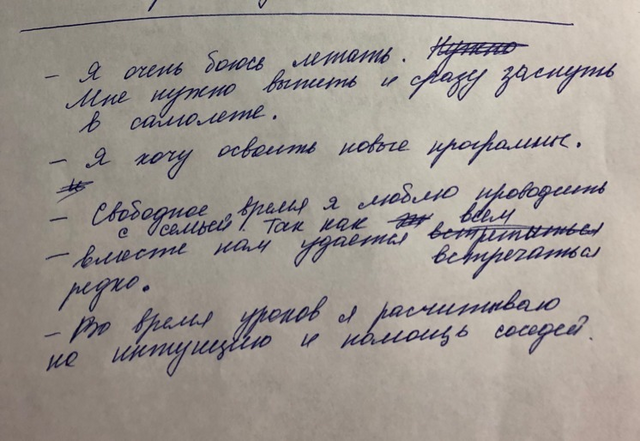 – Я очень боюсь летать. Нужно
Мне нужно выпить и сразу заснуть
в самолете.
– Я хочу освоить новые программы.
– Свободное время я люблю проводить
с семьей. Так как всем
– вместе нам удается встречаться
встречаться
редко.
– Во время уроков я расчитываю
на интуицию и помощь соседей.